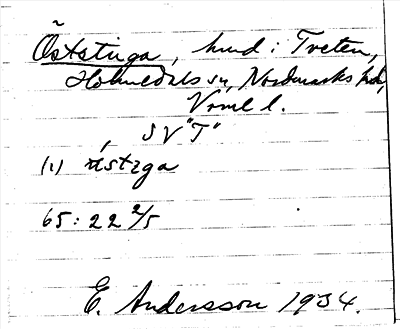 Öststuga, hmd i Treten,
Holmedals sn, Nordmarks hd,
Vrml l.
SV "T"
(1) ɷ́stɛga
65: 22 2/5
E. Andersson 1934.